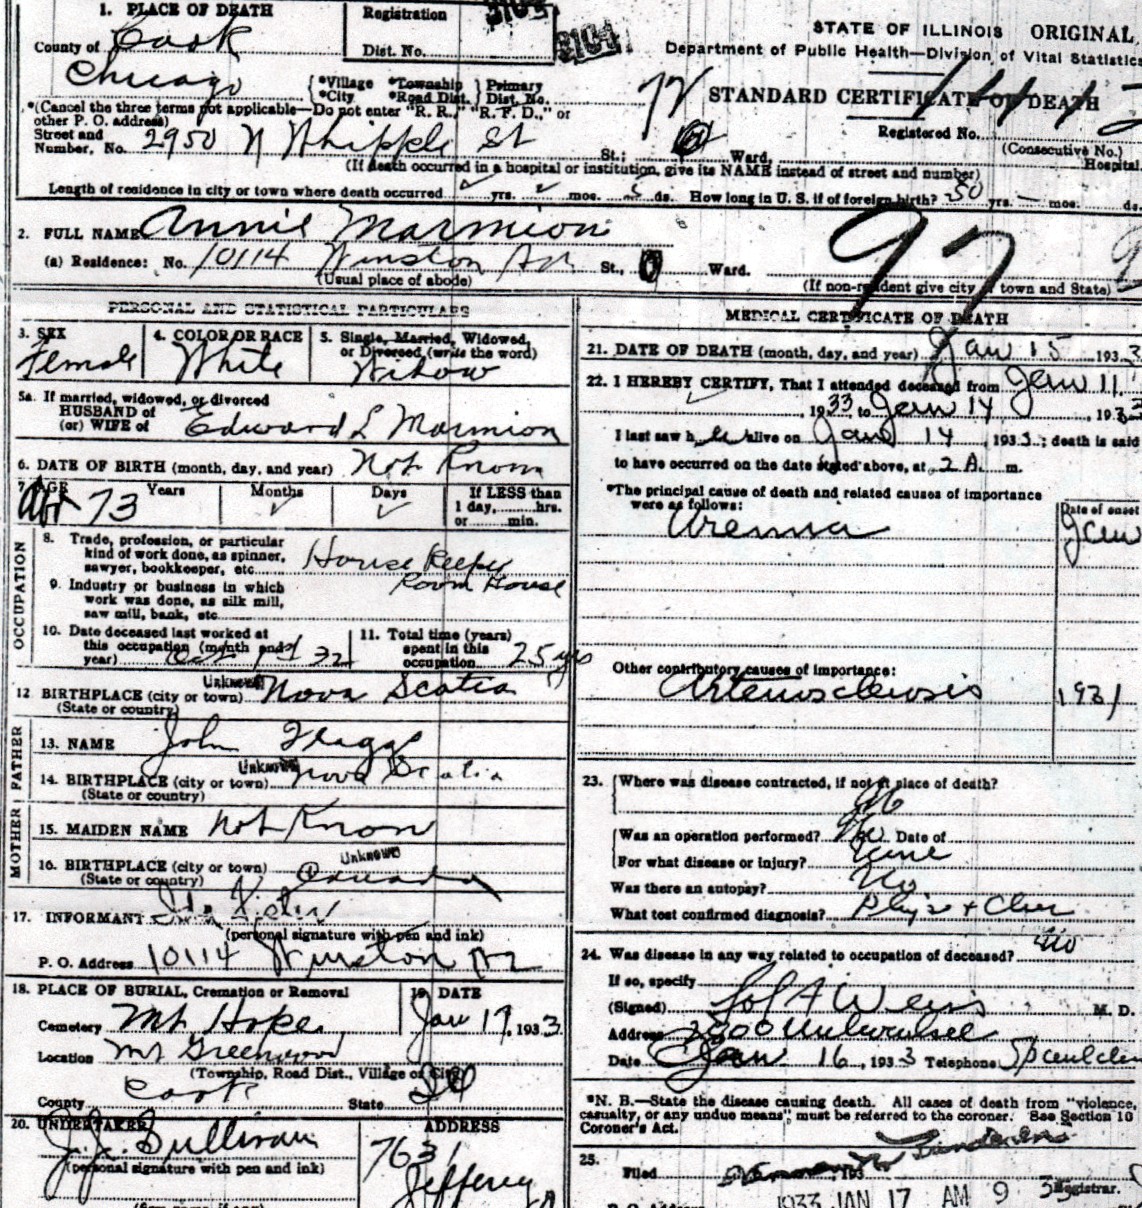 1. PLACE OF DEATH
County of Cook
Registration
Dist. No.
3104
STATE OF ILLINOIS ORIGINAL
Department of Public Health—Division of Vital Statistics
Chicago
*Village *Township Primary
*City *Road Dist. Dist. No.
STANDARD CERTIFICATE OF DEATH
*(Cancel the three terms not applicable—Do not enter "R. R.," "R. F. D.," or other P. O. address)
Registered No.
(Consecutive No.)
Street and Number, No. 2950 N Whipple St St.; Ward, Hospital
(If death occurred in a hospital or institution, give its NAME instead of street and number)
Length of residence in city or town where death occurred yrs. mos. 5 ds. How long in U. S. if of foreign birth? 50 yrs. — mos. ds.
2. FULL NAME Annie Marmion
97
(a) Residence: No. 10114 Winston Av St., Ward.
(Usual place of abode)
(If non-resident give city or town and State)
PERSONAL AND STATISTICAL PARTICULARS
3. SEX Female
4. COLOR OR RACE White
5. Single, Married, Widowed, or Divorced (write the word) Widow
5a. If married, widowed, or divorced
HUSBAND of
(or) WIFE of Edward L Marmion
6. DATE OF BIRTH (month, day, and year) Not Know
7. AGE Years Months Days If LESS than
Abt 73 1 day, hrs.
or min.
OCCUPATION
8. Trade, profession, or particular kind of work done, as spinner, sawyer, bookkeeper, etc. House Keeper
9. Industry or business in which work was done, as silk mill, saw mill, bank, etc. Room House
10. Date deceased last worked at this occupation (month and year) Oct 1st 32
11. Total time (years) spent in this occupation 25 yrs
12. BIRTHPLACE (city or town) Unknown Nova Scotia
(State or country)
FATHER
13. NAME John Flagg
14. BIRTHPLACE (city or town) Unknown Nova Scotia
(State or country)
MOTHER
15. MAIDEN NAME Not Know
16. BIRTHPLACE (city or town) Unknown Canada
(State or country)
17. INFORMANT
(personal signature with pen and ink)
P. O. Address 10114 Winston Av
18. PLACE OF BURIAL, Cremation or Removal
19. DATE
Cemetery Mt Hope Jan 17, 1933
Location Mt Greenwood
(Township, Road Dist., Village or City)
County Cook State Ill
20. UNDERTAKER ADDRESS
J. J. Sullivan 7631
(personal signature with pen and ink) Jeffery
MEDICAL CERTIFICATE OF DEATH
21. DATE OF DEATH (month, day, and year) Jan 15 1933
22. I HEREBY CERTIFY, That I attended deceased from Jan 11
, 1933 to Jan 14, 1933
I last saw her alive on Jan 14, 1933; death is said
to have occurred on the date stated above, at 2 A. m.
*The principal cause of death and related causes of importance were as follows:
Date of onset
Uremia Jan
Other contributory causes of importance:
Arteriosclerosis 1931
23. Where was disease contracted, if not at place of death?
Was an operation performed? No Date of
For what disease or injury?
Was there an autopsy? No
What test confirmed diagnosis? Phys + Chem
24. Was disease in any way related to occupation of deceased? no
If so, specify
(Signed) Sol A Weiss M. D.
Address Milwaukee
Date Jan 16, 1933 Telephone Spaulding
*N. B.—State the disease causing death. All cases of death from "violence, casualty, or any undue means" must be referred to the coroner. See Section 10 Coroner's Act.
25.
Filed , 193
Registrar.
1933 JAN 17 AM 9 3